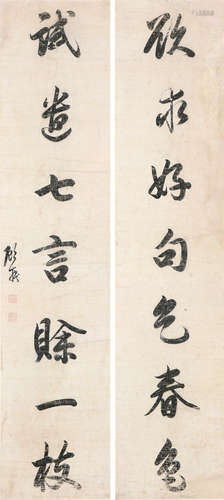 欲求好句乞春色
試造七言賒一枝